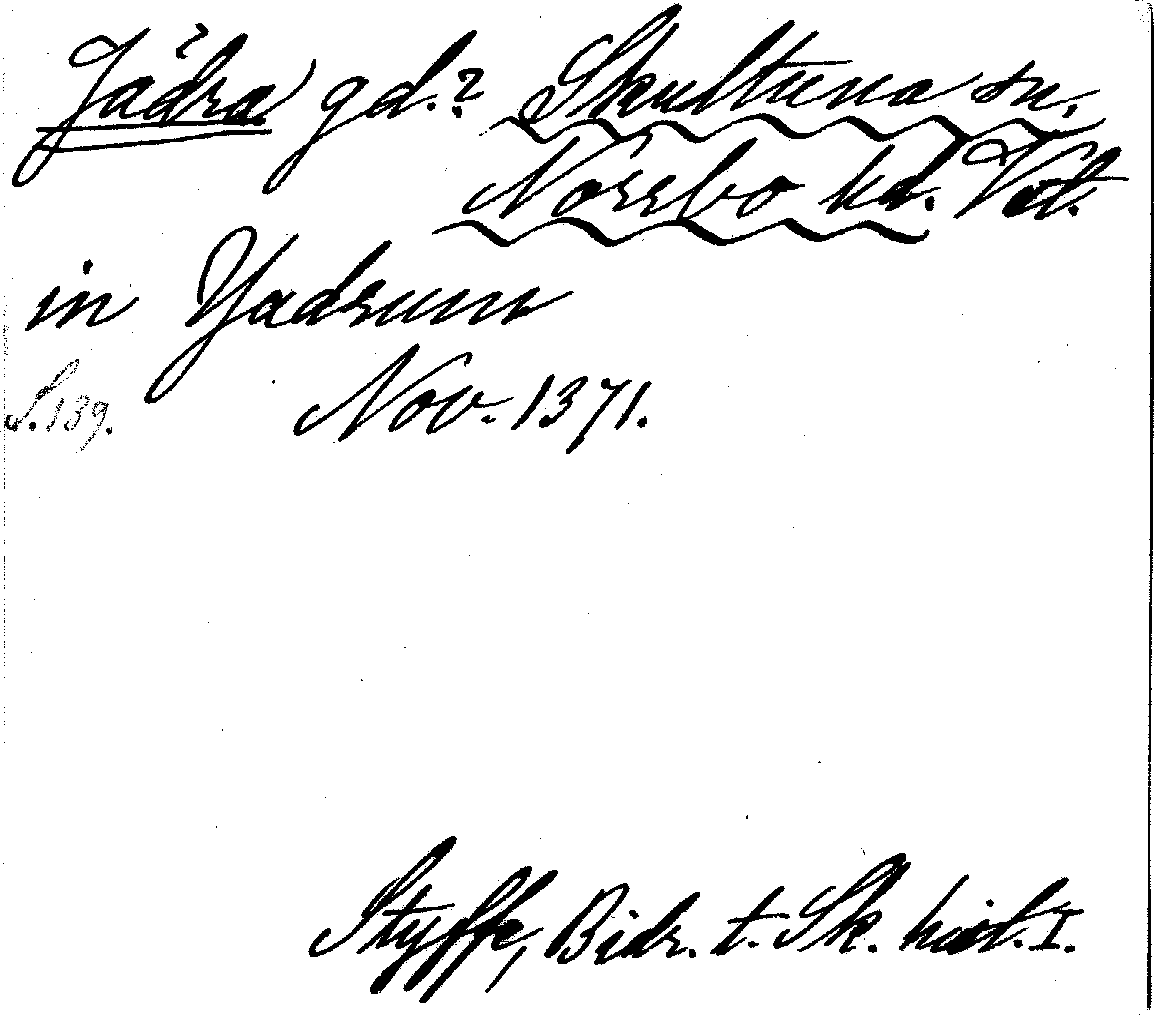 Jädra gd.? Skultuna sn.
Norrbo hd. Vstl.
in Yadrum
S. 139. Nov. 1371.
Styffe, Bidr. t. Sk. hist. I.